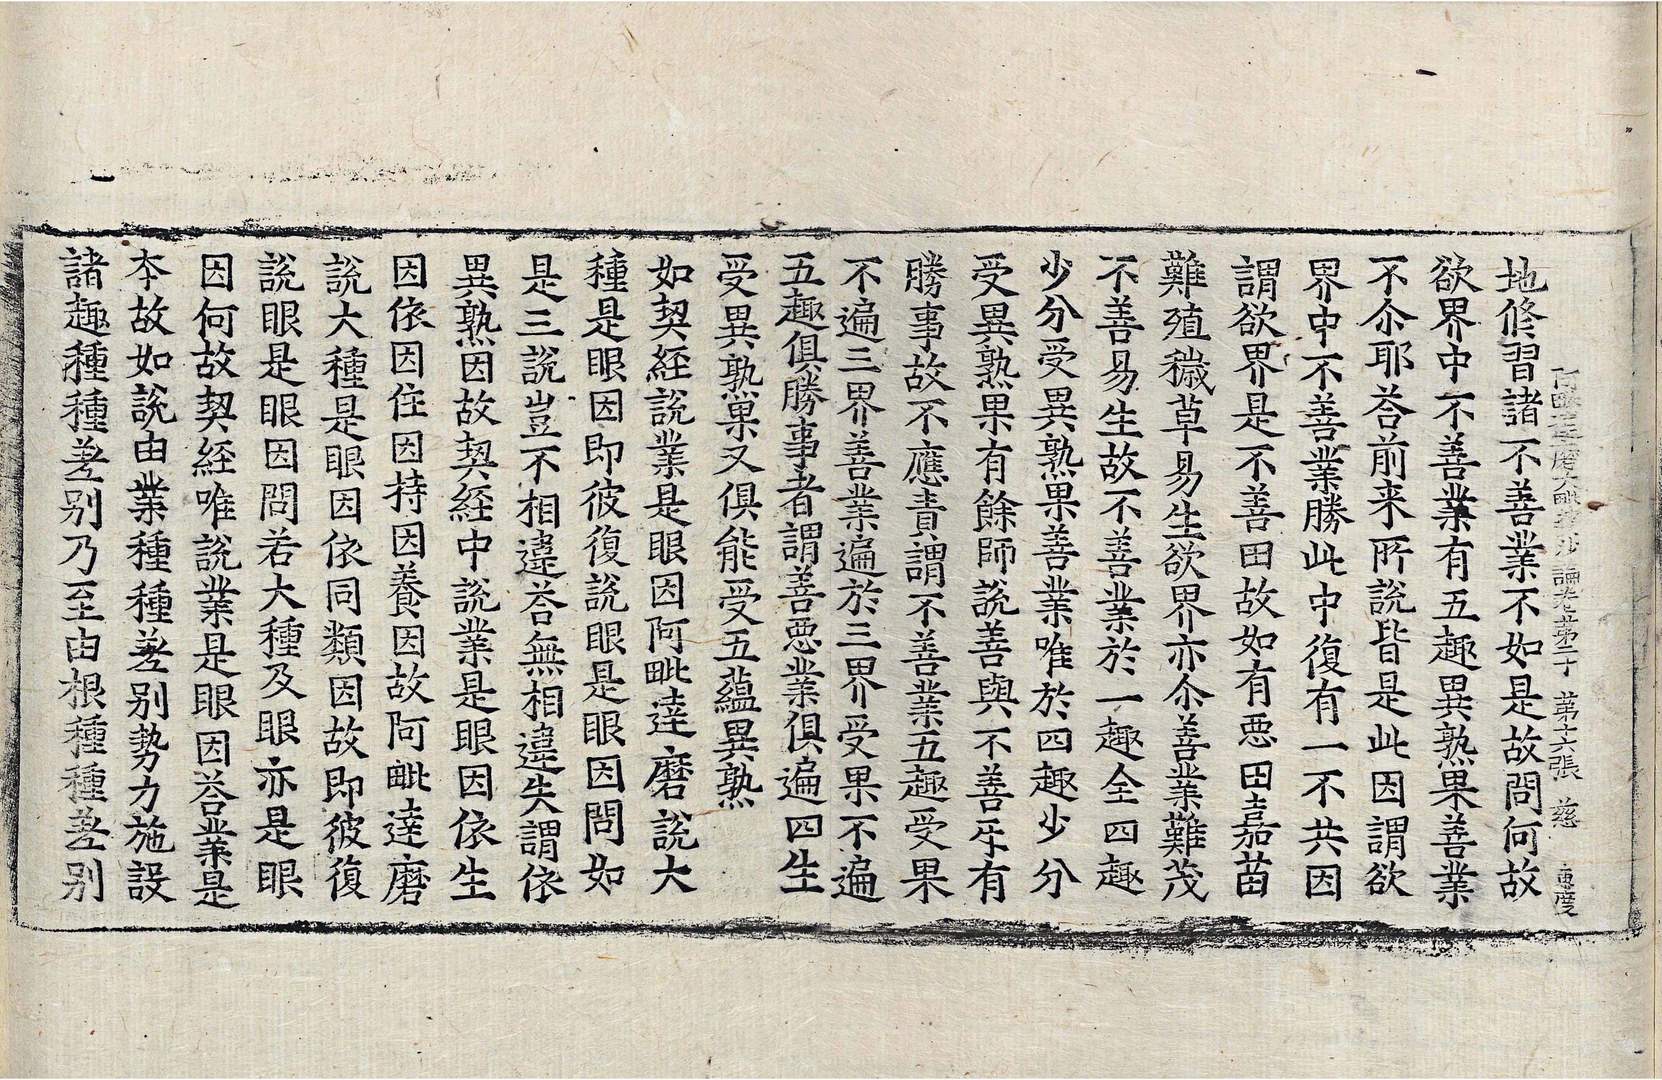 阿毗達磨大毗婆沙論卷苐二十 苐十六張 慈
地修習諸不善業不如是故問何故
欲界中不善業有五趣異熟果善業
不尒耶荅前来所說皆是此因謂欲
界中不善業勝此中復有一不共因
謂欲界是不善田故如有惡田嘉苗
難殖穢草易生欲界亦尒善業難茂
不善易生故不善業於一趣全四趣
少分受異熟果善業唯於四趣少分
受異熟果有餘師說善與不善乐有
勝事故不應責謂不善業五趣受果
不遍三界善業遍於三界受果不遍
五趣俱勝事者謂善惡業俱遍四生
受異熟果又俱能受五蘊異熟
如契經說業是眼因阿毗達磨說大
種是眼因即彼復說眼是眼因問如
是三說豈不相違荅無相違失謂依
異熟因故契經中說業是眼因依生
因依因住因持因養因故阿毗達磨
說大種是眼因依同類因故即彼復
說眼是眼因問若大種及眼亦是眼
因何故契經唯說業是眼因荅業是
夲故如說由業種種差別勢力施設
諸趣種種差別乃至由根種種差別